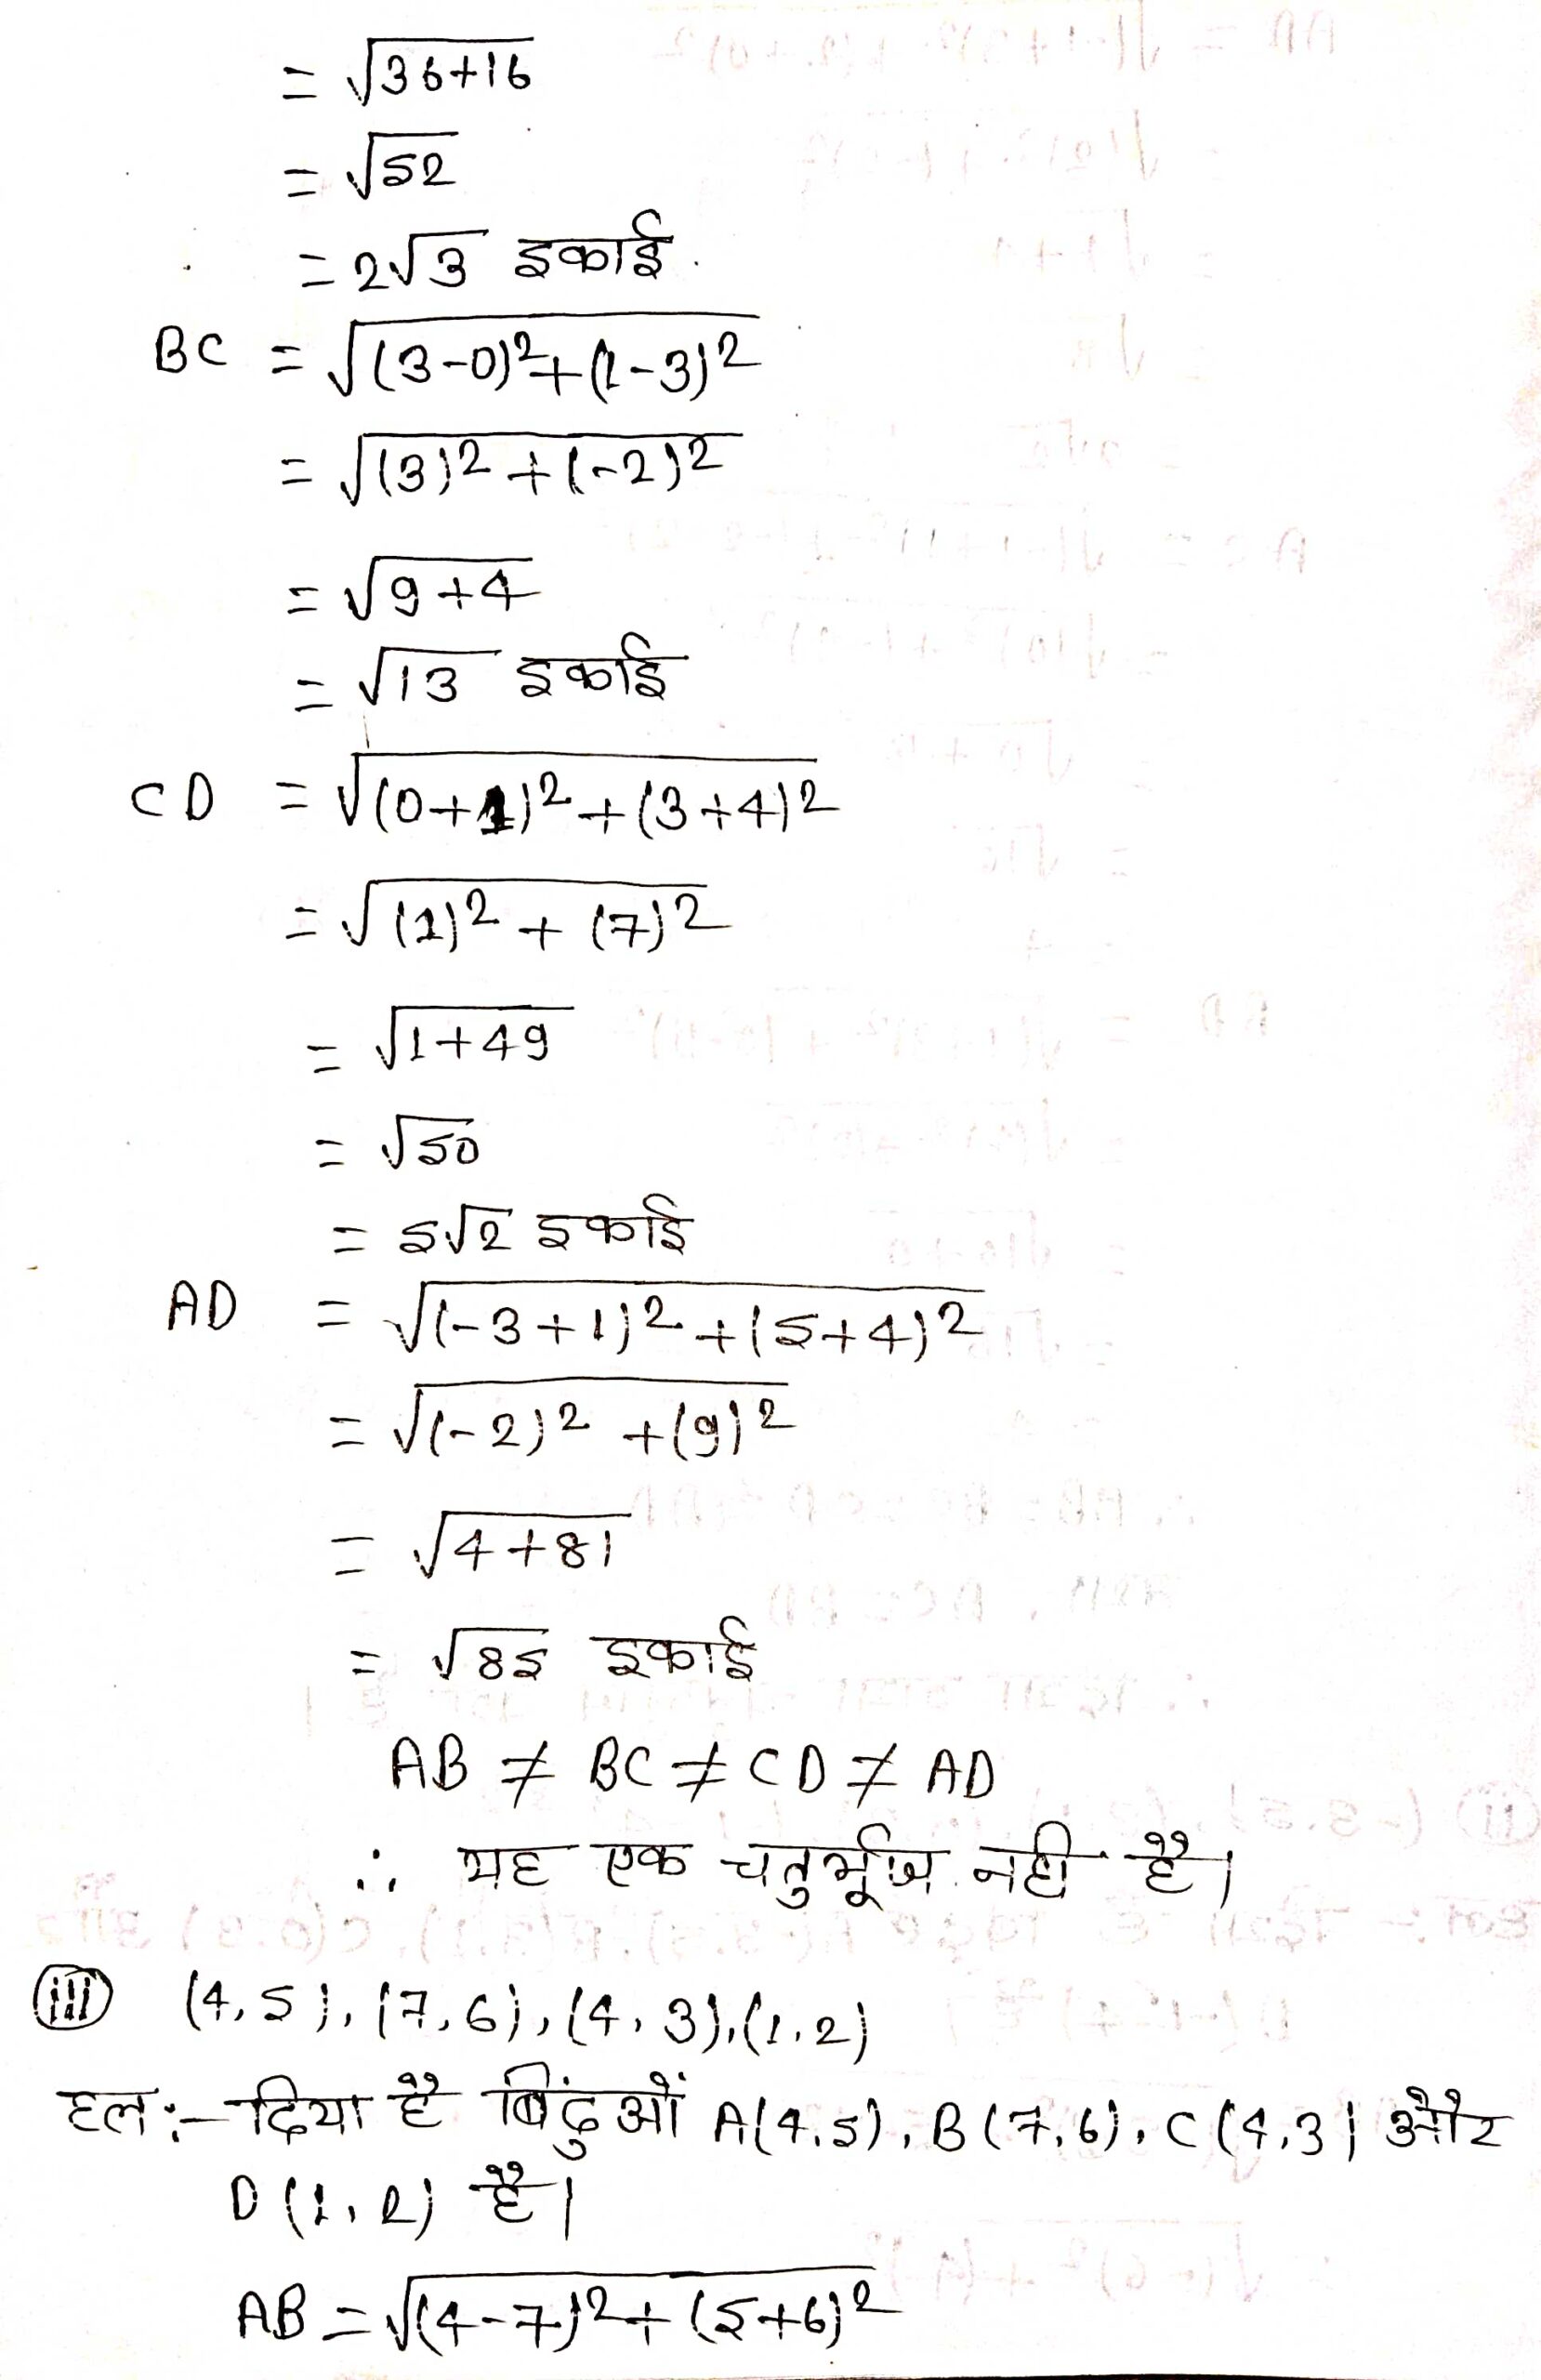 = √36+16
= √52
= 2√3 इकाई.
BC = √(3-0)²+(1-3)²
= √(3)²+(-2)²
= √9+4
= √13 इकाई
CD = √(0+1)²+(3+4)²
= √(1)²+(7)²
= √1+49
= √50
= 5√2 इकाई
AD = √(-3+1)²+(5+4)²
= √(-2)²+(9)²
= √4+81
= √85 इकाई
AB ≠ BC ≠ CD ≠ AD
∴ यह एक चतुर्भूज नही है।
(iii) (4,5), (7,6), (4,3), (1,2)
हल:- दिया है बिंदुओं A(4,5), B(7,6), C(4,3) और
D(1,2) है।
AB = √(4-7)²+(5+6)²